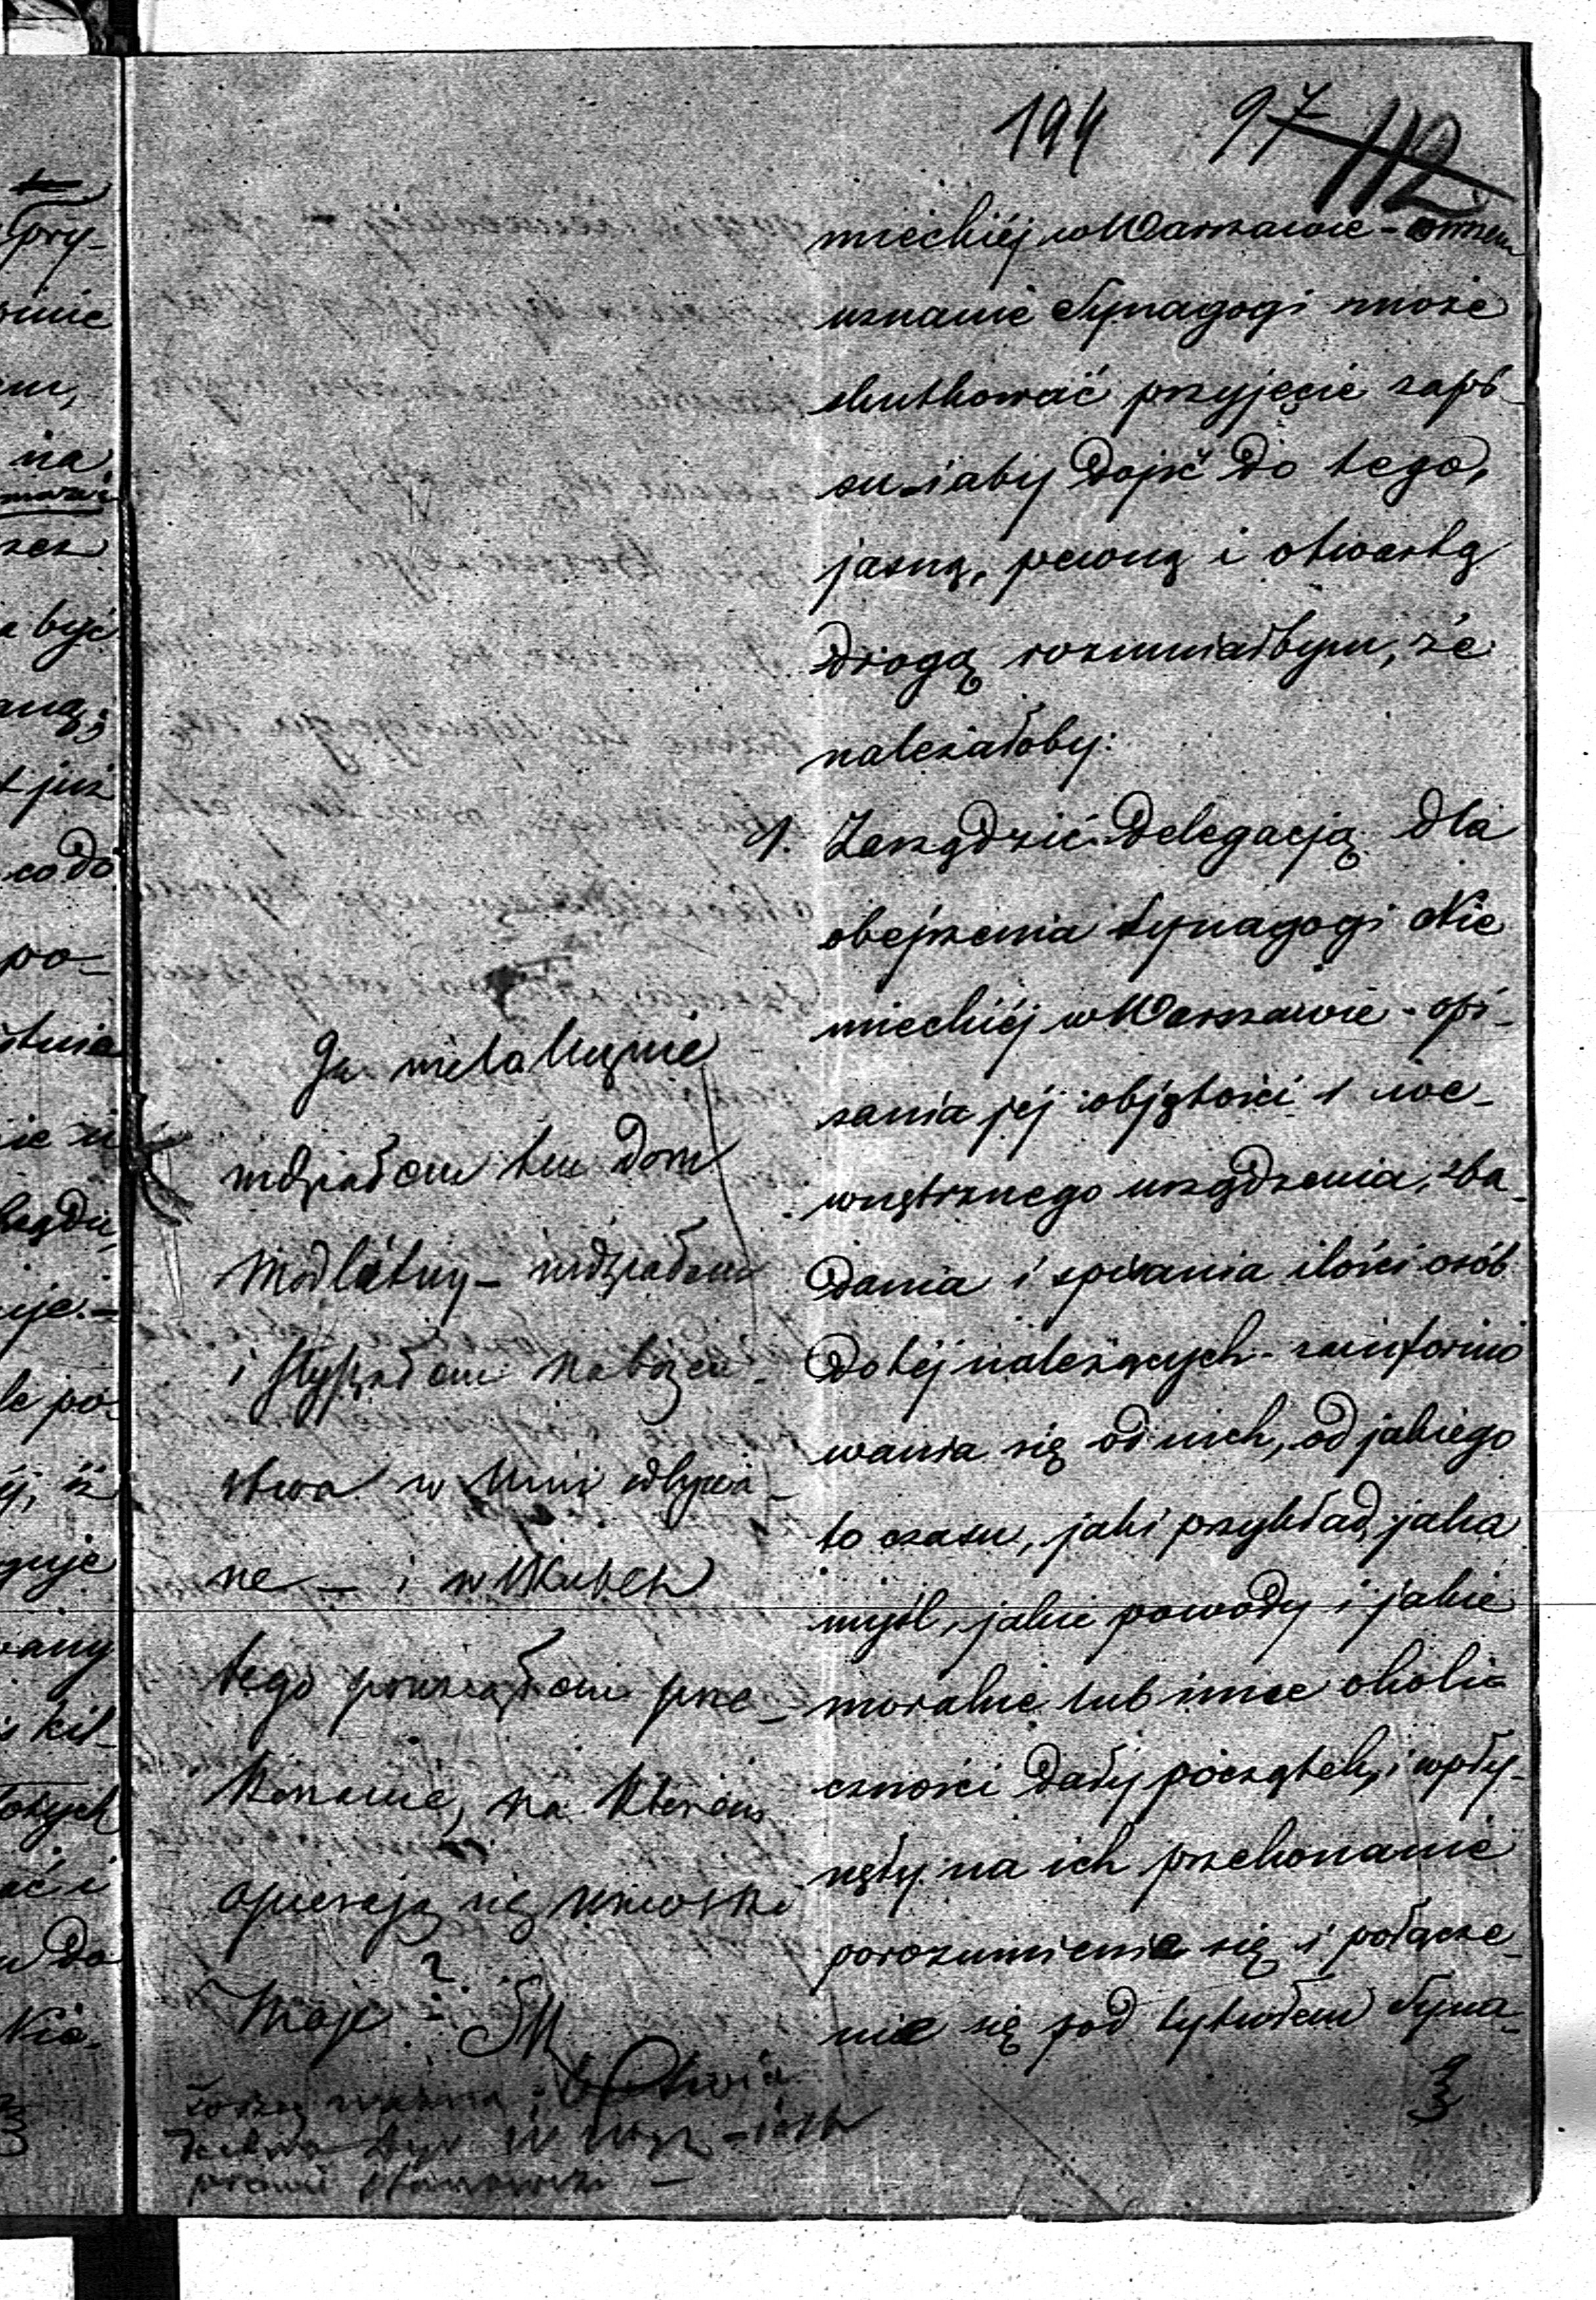 194 97 112
mieckiéj w Warszawie -
uznanie Synagogi może
skutkować przyjęcie zapi-
su - i aby dojść do tego,
jasną, pewną i otwartą
drogą rozumiałbym, że
należałoby:
1. Zarządzić Delegacją dla
obejrzenia Synagogi Nie
mieckiéj w Warszawie - opi-
sania jej objętości i we-
wnętrznego urządzenia, zba-
dania i spisania ilości osób
do téj należących - zainformo
wania się od nich, od jakiego
to czasu, jaki przykład, jaka
myśl, jakie powody i jakie
moralne lub inne okoli-
czności dały początek, i wpły-
nęły na ich przekonanie
porozumienie się i połącze-
nie się pod tytułem Syna-
3
Ja
widziałem ten dom
Modlitwy - widziałem
i słyszałem nabożeń-
stwa w nim odbywa-
ne - i w skutek
tego powziąłem prze-
konanie, na którém
opierają się wnioski
moje